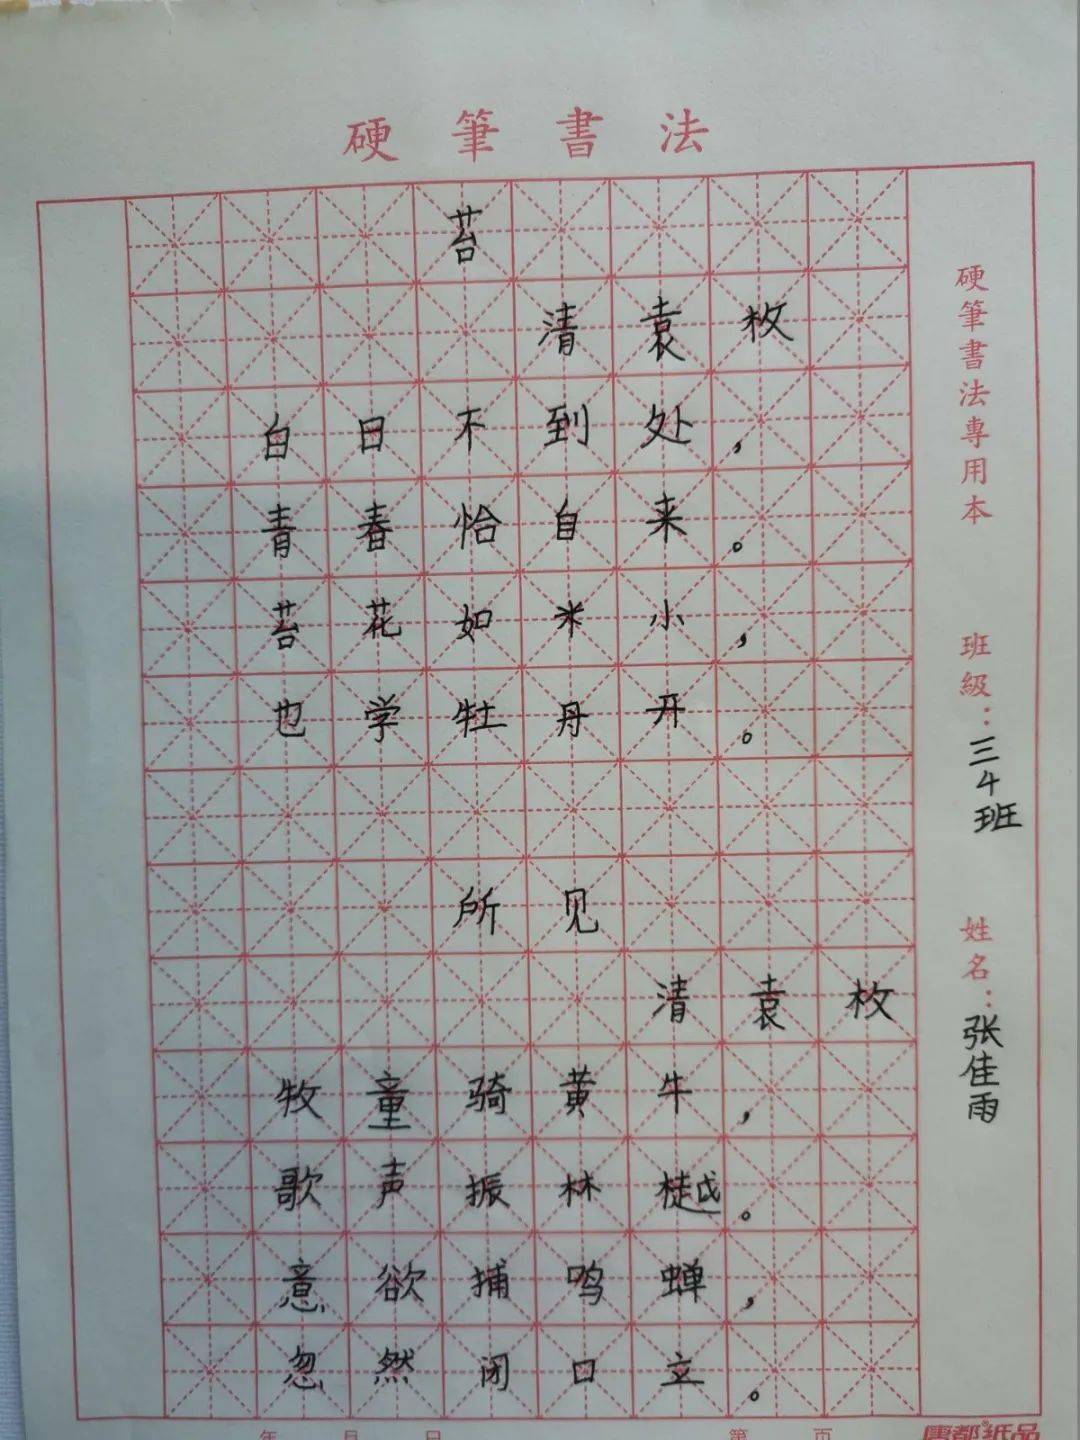 硬筆書法
苔
清袁枚
白日不到处，
青春恰自来。
苔花如米小，
也学牡丹开。
所见
清袁枚
牧童骑黄牛，
歌声振林樾。
意欲捕鸣蝉，
忽然闭口立。
硬筆書法專用本
班級：三4班
姓名：张佳雨
年 月 日 第 页
唐都®纸品